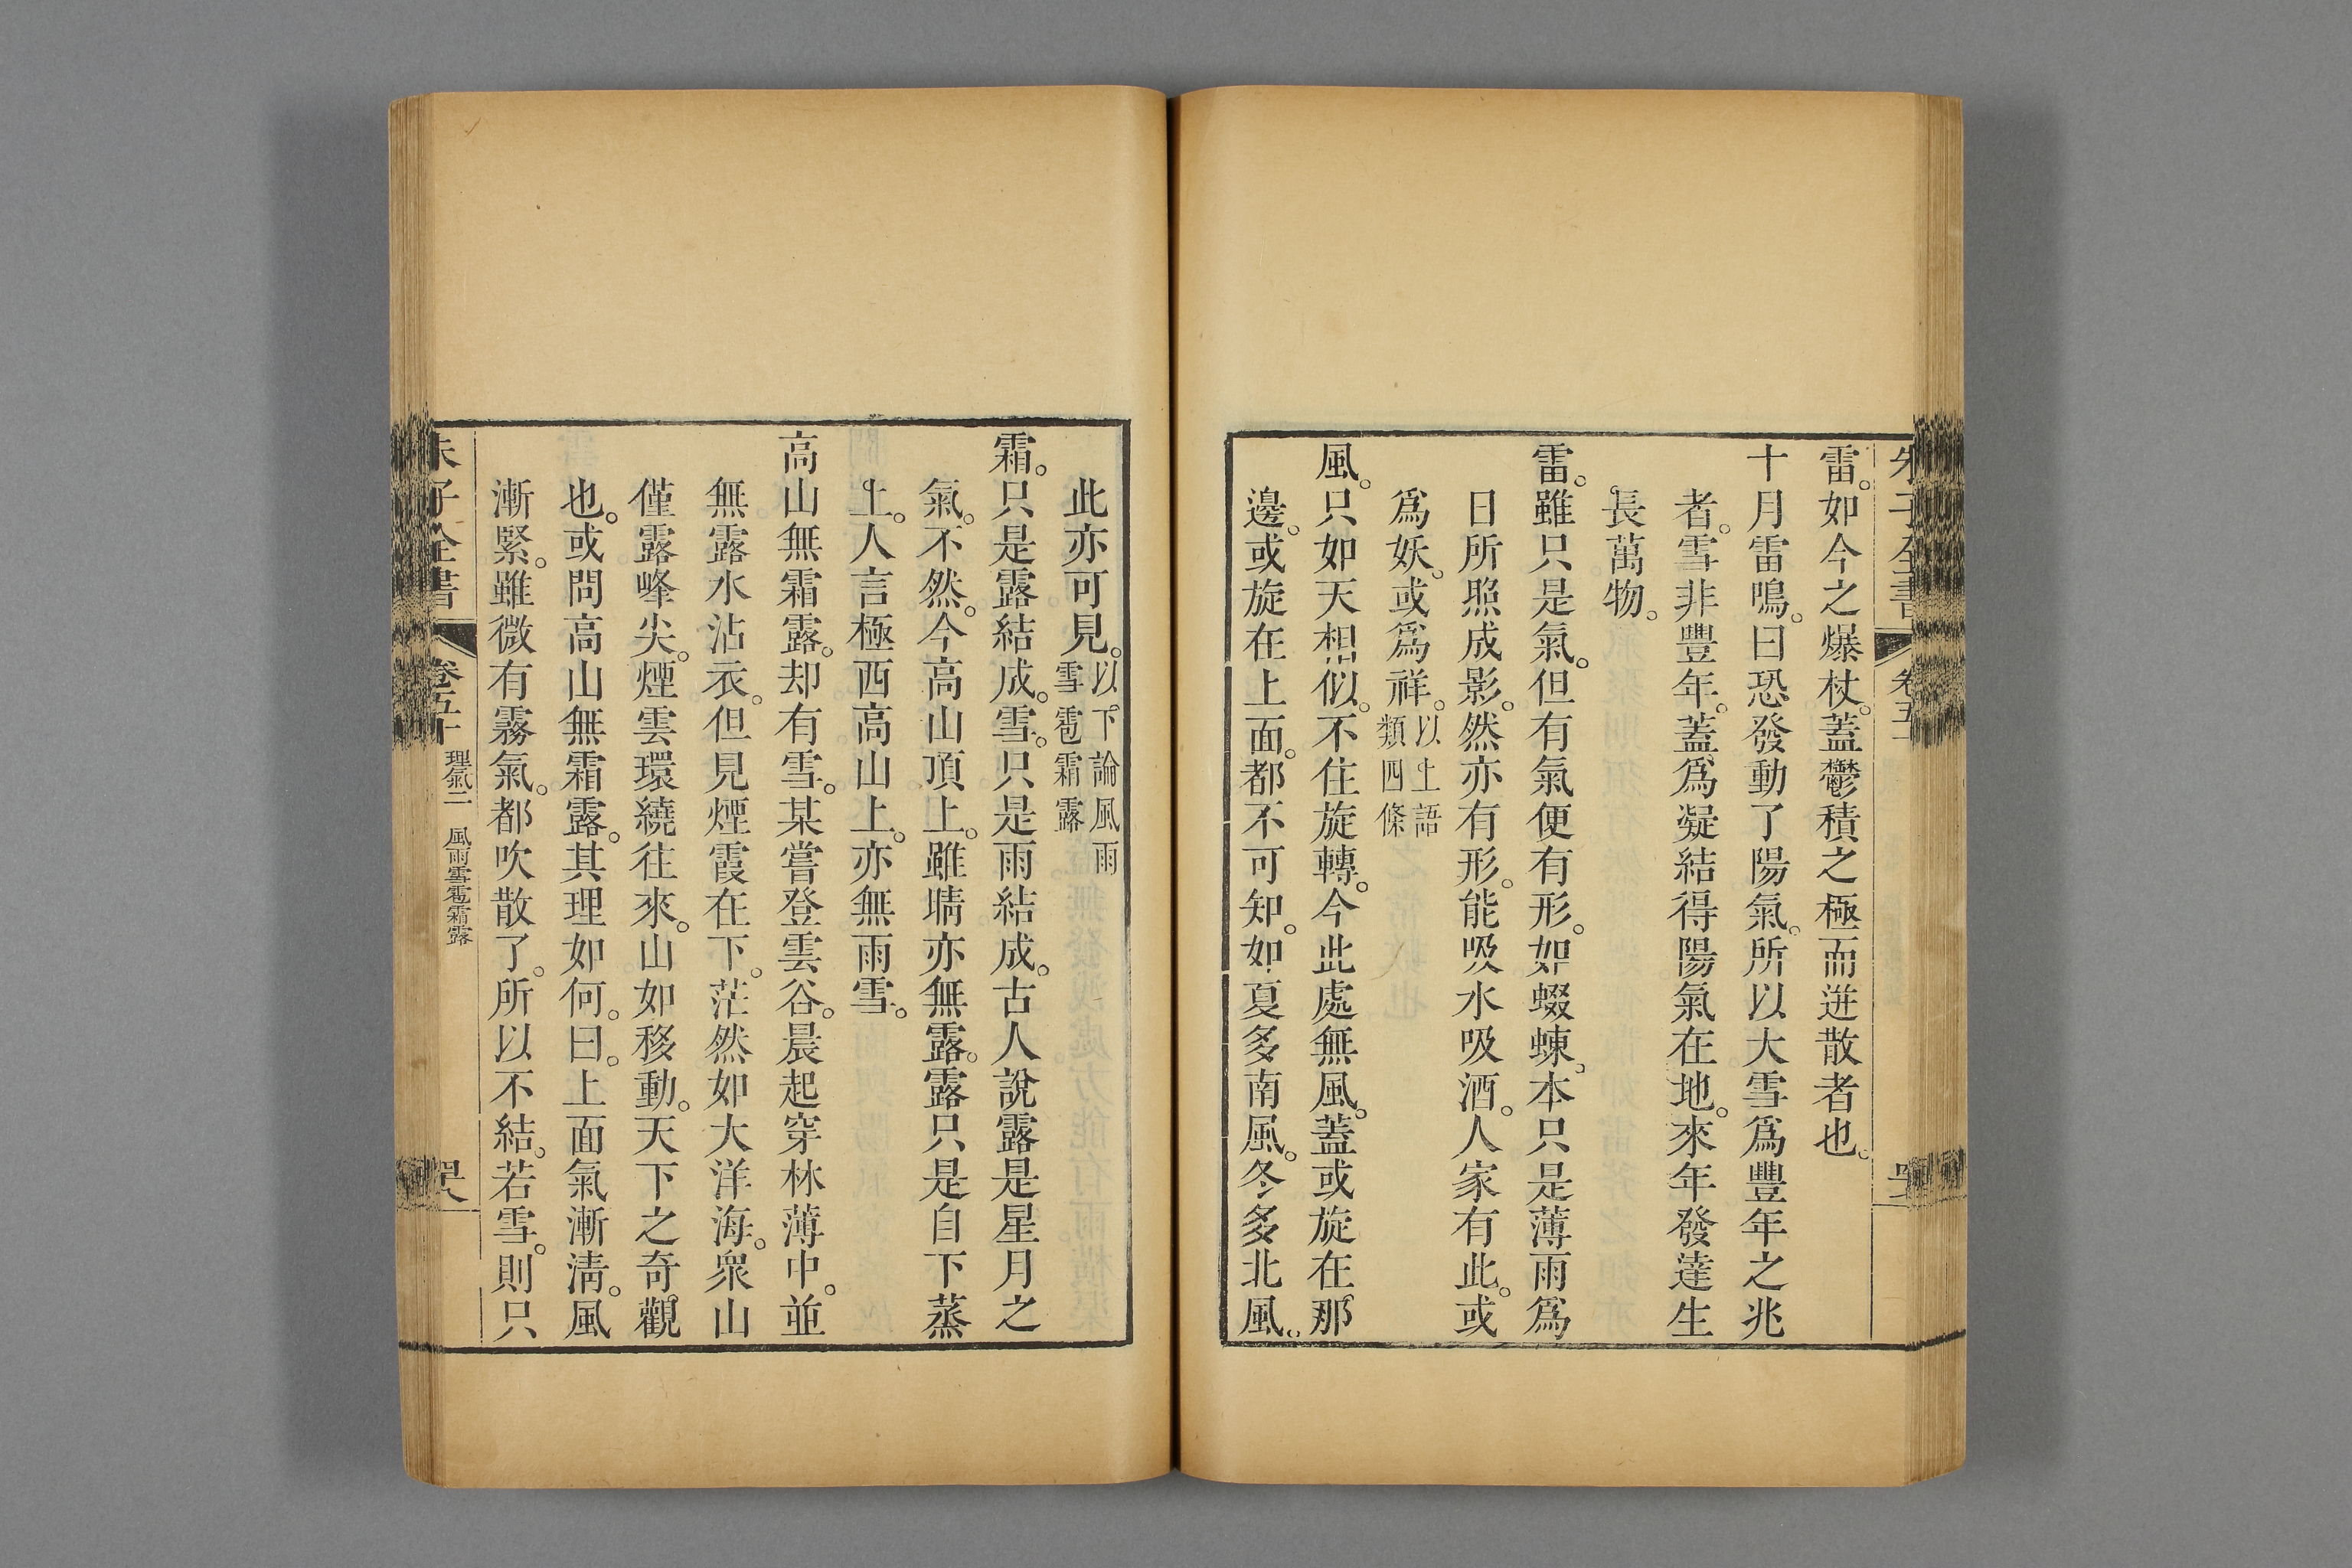 雷。如今之爆杖。蓋鬱積之極而迸散者也。
十月雷鳴。曰恐發動了陽氣。所以大雪爲豐年之兆
者。雪非豐年。蓋爲凝結得陽氣在地。來年發達生
長萬物。
雷。雖只是氣。但有氣便有形。如蝃蝀。本只是薄雨爲
日所照成影。然亦有形。能吸水吸酒。人家有此。或
爲妖。或爲祥。以上語類四條
風。只如天相似。不住旋轉。今此處無風。蓋或旋在那
邊。或旋在上面。都不可知。如夏多南風。冬多北風。
此亦可見。以下論風雨雪雹霜露
霜。只是露結成。雪。只是雨結成。古人說露是星月之
氣。不然。今高山頂上。雖晴亦無露。露只是自下蒸
上。人言極西高山上。亦無雨雪。
高山無霜露。却有雪。某嘗登雲谷。晨起穿林薄中。並
無露水沾衣。但見煙霞在下。茫然如大洋海。衆山
僅露峰尖。煙雲環繞往來。山如移動。天下之奇觀
也。或問高山無霜露。其理如何。曰。上面氣漸淸。風
漸緊。雖微有霧氣。都吹散了。所以不結。若雪。則只
朱子全書 卷五十 理氣二 風雨雪雹霜露